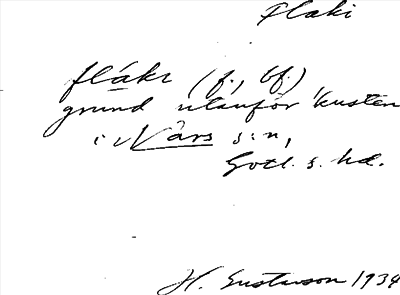 flaki
flákı (f., bf.)
grund utanför kusten
i När s:n,
Gotl. s. hd.
H. Gustavson 1934